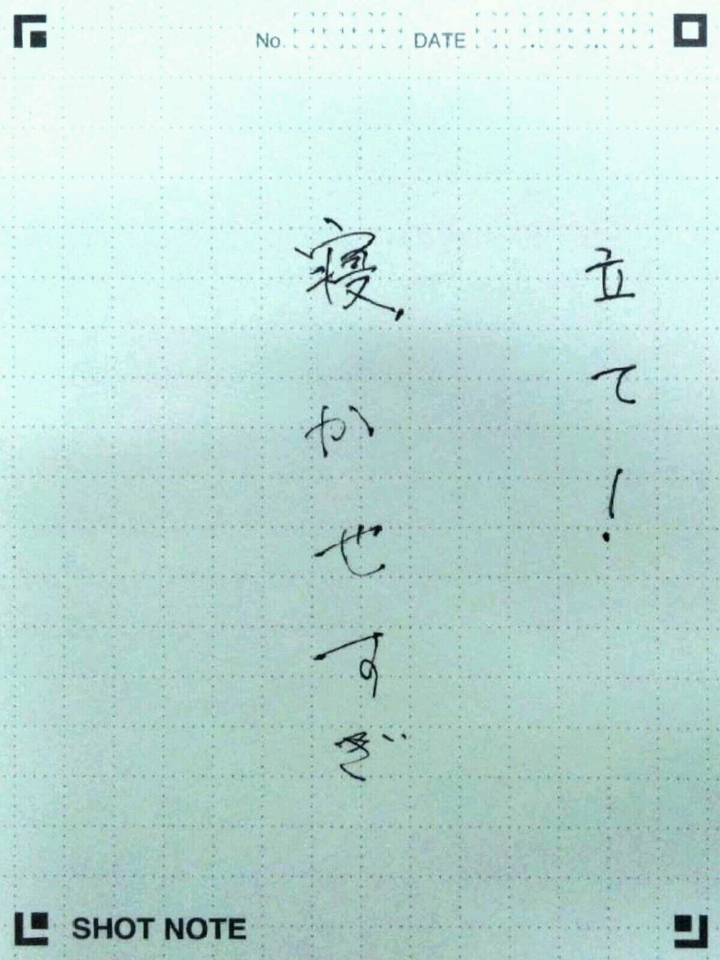 No. DATE
立て!
寝かせすぎ
SHOT NOTE